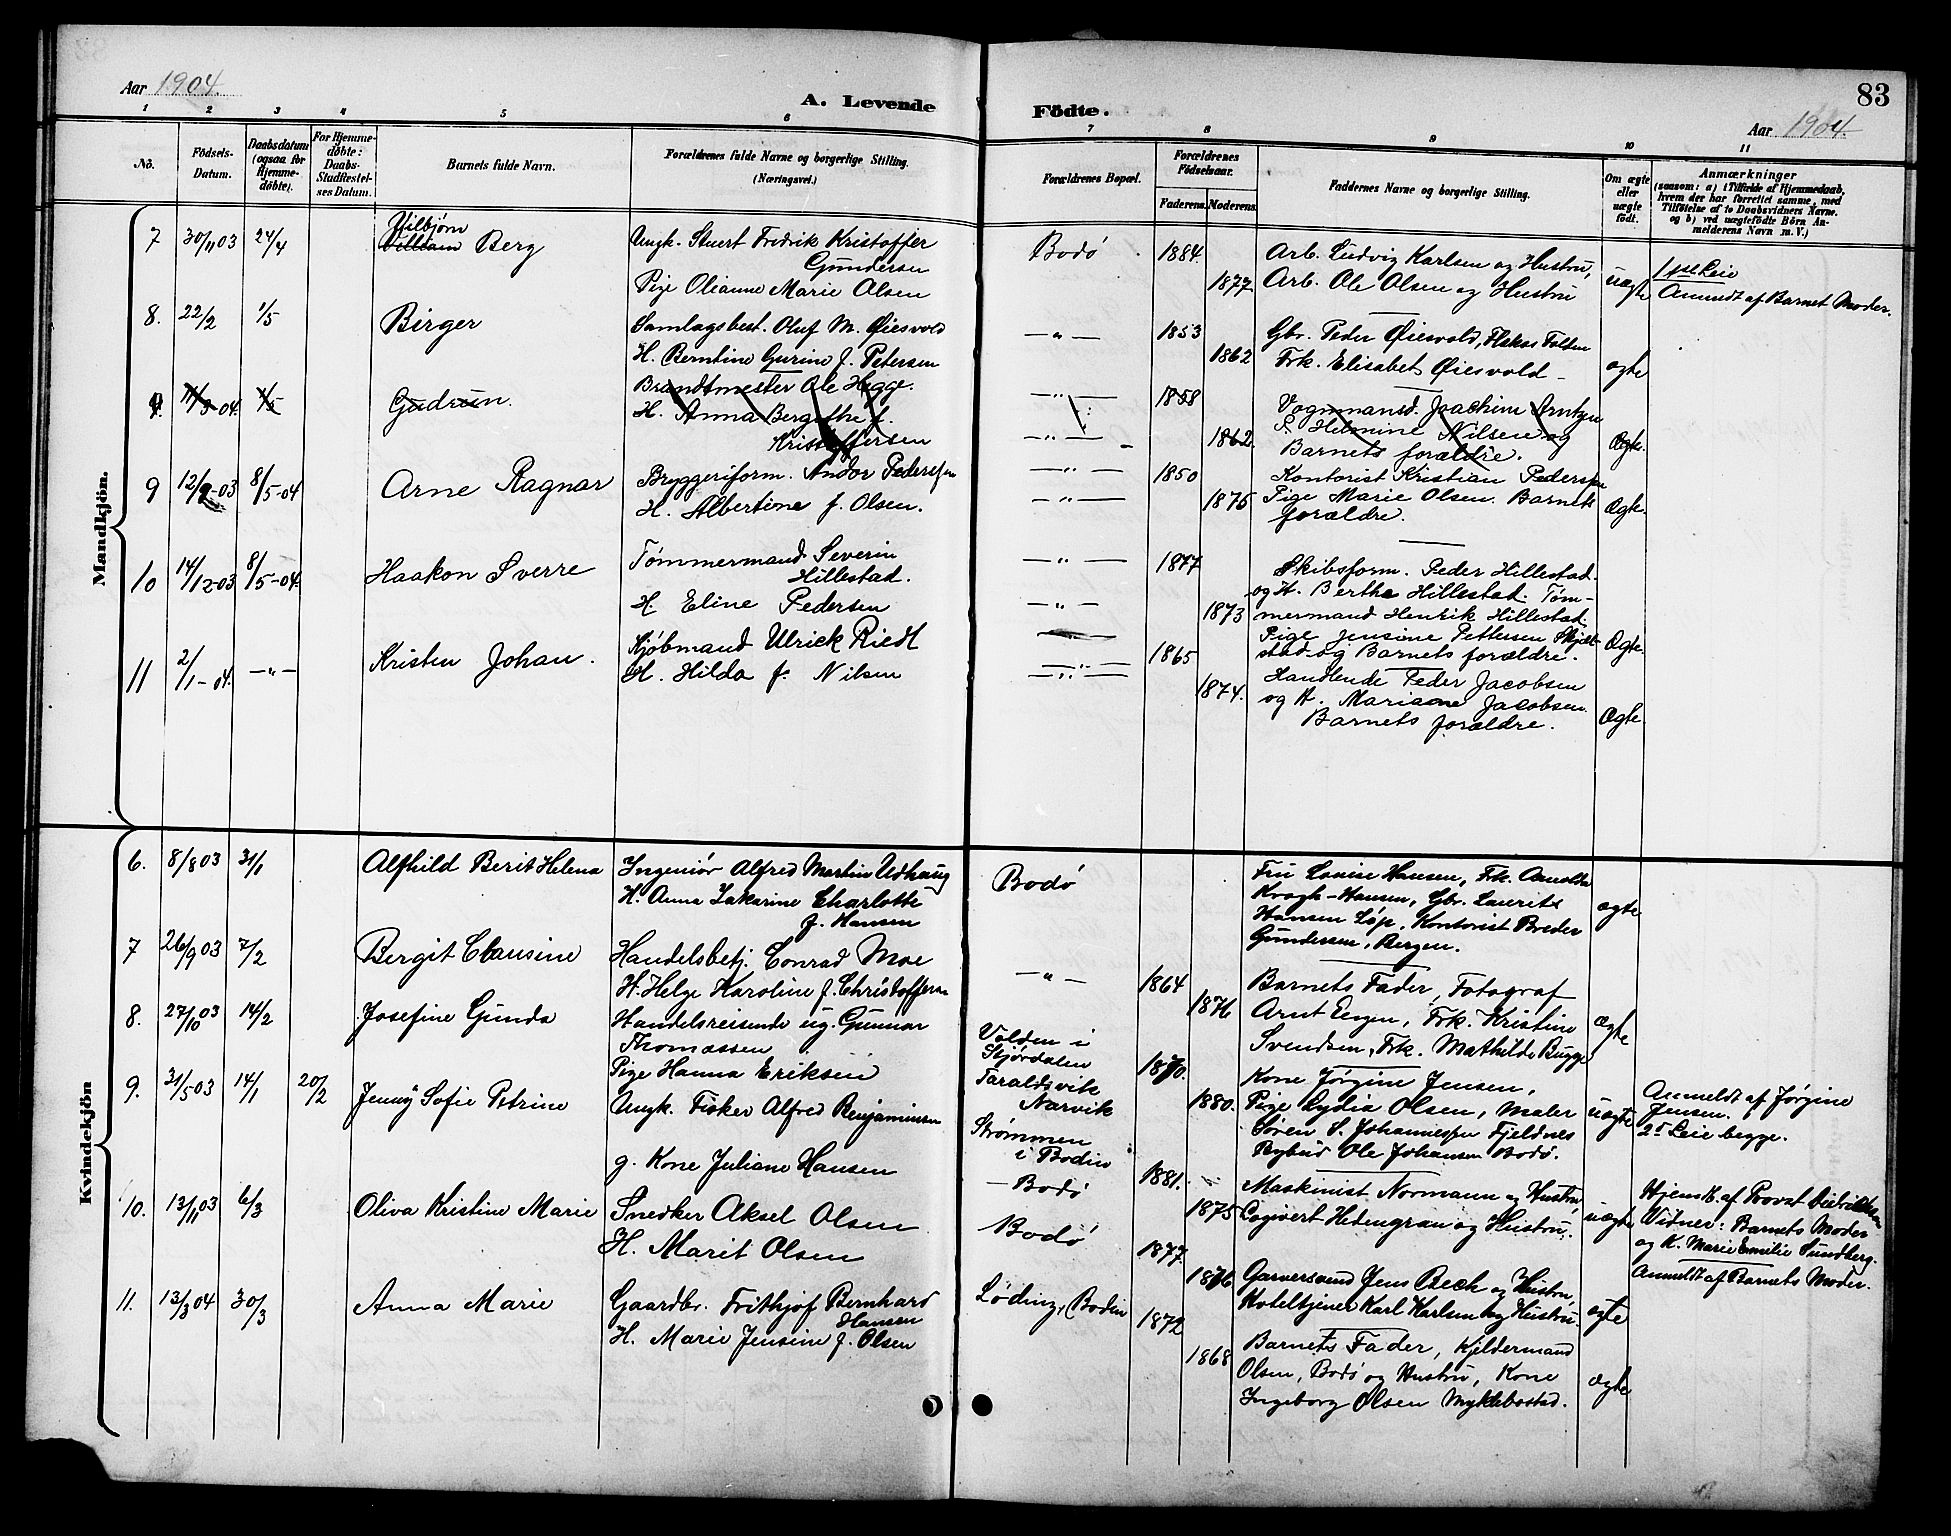 Aar 1904.
A. Levende Födte.
83
Aar 1904.
1 2 3 4 5 6 7 8 9 10 11
No.
Födsels-Datum.
Daabsdatum (ogsaa for Hjemmedöbte).
For Hjemmedöbte: Daabs-Stadfæstelses Datum.
Barnets fulde Navn.
Forældrenes fulde Navne og borgerlige Stilling. (Næringsvei.)
Forældrenes Bopæl.
Forældrenes Födselsaar.
Faderens. Moderens.
Faddernes Navne og borgerlige Stilling.
Om ægte eller uægte født.
Anmærkninger
(saasom: a) i Tilfælde af Hjemmedaab,
hvem der har forrettet samme, med
Tilföielse af to Daabsvidners Navne,
og b) ved uægtefödte Börn Anmelderens Navn m. V.)
Mandkjön.
7 30/11 03 24/4 Hilbjörn
Villiam Berg
Ungk. Stuert Fredrik Kristoffer
Gundersen
Pige Olianne Marie Olsen
Bodö 1884. 1877.
Arb. Ludvig Karlsen og Hustru,
Arb. Ole Olsen og Hustru
uægte
1ste Leie
Anmeldt af Barnets Moder.
8. 22/2 1/5 Birger
Samlagsbest. Oluf M. Øiesvold
H. Berntine Gurine f. Petersen
— " — 1853 1862
Gbr. Peder Øiesvold, Folden
Frk. Elisabet Øiesvold —
ægte
9. 11/3 04. 1/5 Gudrun.
Brandtmester Ole Hegge.
H. Anna Bergithe f.
Kristoffersen
— " — 1858
— " — 1862.
Vognmansd. Joachim Arntzen
P. Helmine Nilsen og
Barnets forældre.
Ægte.
9 12/9-03 8/5-04 Arne Ragnar
Bryggeriform. Andor Pedersen
H. Albertine f. Olsen.
— " — 1850
— " — 1875
Kontorist Kristian Pedersen
Pige Marie Olsen. Barnets
forældre.
Ægte.
10 14/12-03 8/5-04. Haakon Sverre
Tømmermand Severin
Hillestad.
H. Eline Pedersen
— " — 1877
— " — 1873
Skibsform. Peder Hillestad.
og H. Berthe Hillestad. Tøm-
mermand Henrik Hillestad
Pige Jensine Pettersen Skjel-
stad og Barnets forældre.
Ægte.
11 2/1-04. — " — Kristen Johan.
Kjöbmand Ulrick Riedl
H. Hilda f. Nilsen
— " — 1865 1874.
Handlende Peder Jacobsen
og H. Marianne Jacobsen.
Barnets forældre.
Ægte.
Kvindekjön
6. 8/8 03 31/1 Alfhild Berit Helena
Ingeniör Alfred Martin Udhaug
H. Anna Zakarine Charlotte
f. Hansen
Bodö
Fru Louise Hansen, Frk. Arnolda
Krogh-Hansen, Gbr. Laurits
Hansen Løp, Kontorist Breder
Gundersen, Bergen.
ægte
7 26/9 03 7/2 Bergit Clausine
Handelsbetj. Conrad Moe
H. Helge Karoline f. Christoffersen
— " — 1864 1876
Barnets Fader, Fotograf
Arnt Engen, Frk. Kristine
Svendsen, Frk. Mathilde Bugge
ægte
8. 27/10 03 14/2 Josefine Gunda
Handelsreisende ug. Gunnar
Thomassen
Pige Hanna Eriksen
Volden i
Stjørdalen
Taraldsvik
Narvik
1870. 1880.
Kone Jørgine Jensen,
Pige Lydia Olsen, Maler
Søren S. Johannessen Fjeldnes
Bybud Ole Johansen Bodö.
uægte
Anmeldt af Jørgine
Jensen.
2et Leie begge.
9. 31/5 03 14/1 20/2 Jenny Sofie Petrine
Ungk. Fisker Alfred Benjaminsen
g. Kone Juliane Hansen
Strømmen
i Bodin
— Bodö
1881. 1875
Maskinist Normann og Hustru,
Logivert Hetengran og Hustru.
uægte
Hjemk. af Provst
Vidner: Barnets Moder
og K. Marie Emilie Sundberg.
Anmeldt af Barnets Moder.
10. 13/11 03 6/3 Oliva Kristine Marie
Snedker Aksel Olsen
H. Marit Olsen
Bodö
1877. 1876
Garversvend Jens Beck og Hustru,
Hoteltjener Karl Karlsen og Hustru.
ægte
11. 13/3 04 30/3 Anna Marie
Gaardbr. Frithjof Bernhard
Hansen
H. Marie Jensine f. Olsen
Løding, Bodin
1872 1868
Barnets Fader, Kjeldermand
Olsen, Bodö og Hustru, Kone
Ingeborg Olsen Myklebostad.
ægte